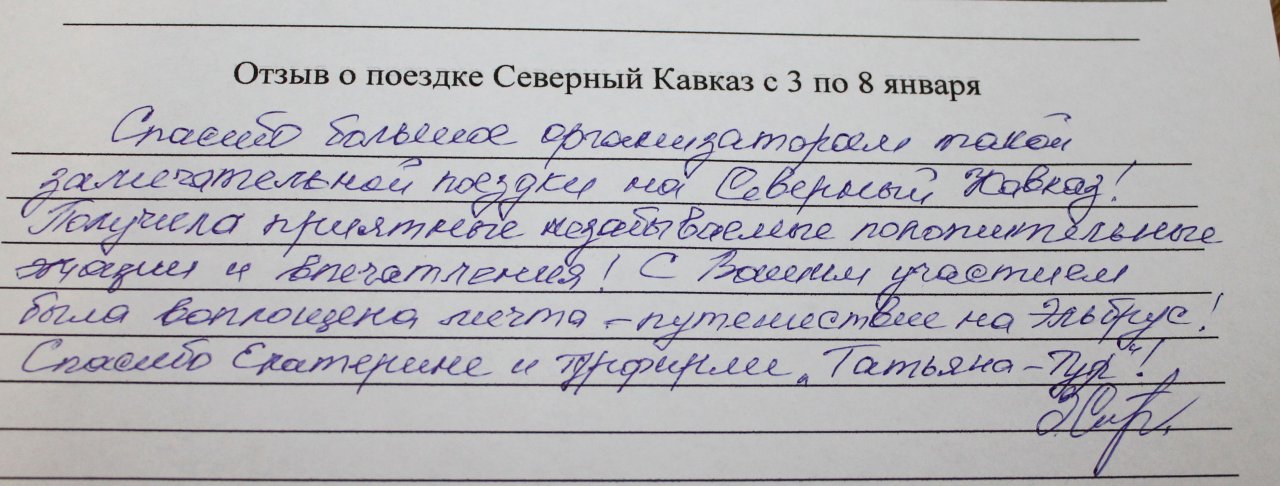 Отзыв о поездке Северный Кавказ с 3 по 8 января
Спасибо большое организаторам такой
замечательной поездки на Северный Кавказ!
Получила приятные незабываемые положительные
и впечатления! С Вашим участием
была воплощена мечта – путешествие на Эльбрус!
Спасибо Екатерине и турфирме „Татьяна – Тур"!